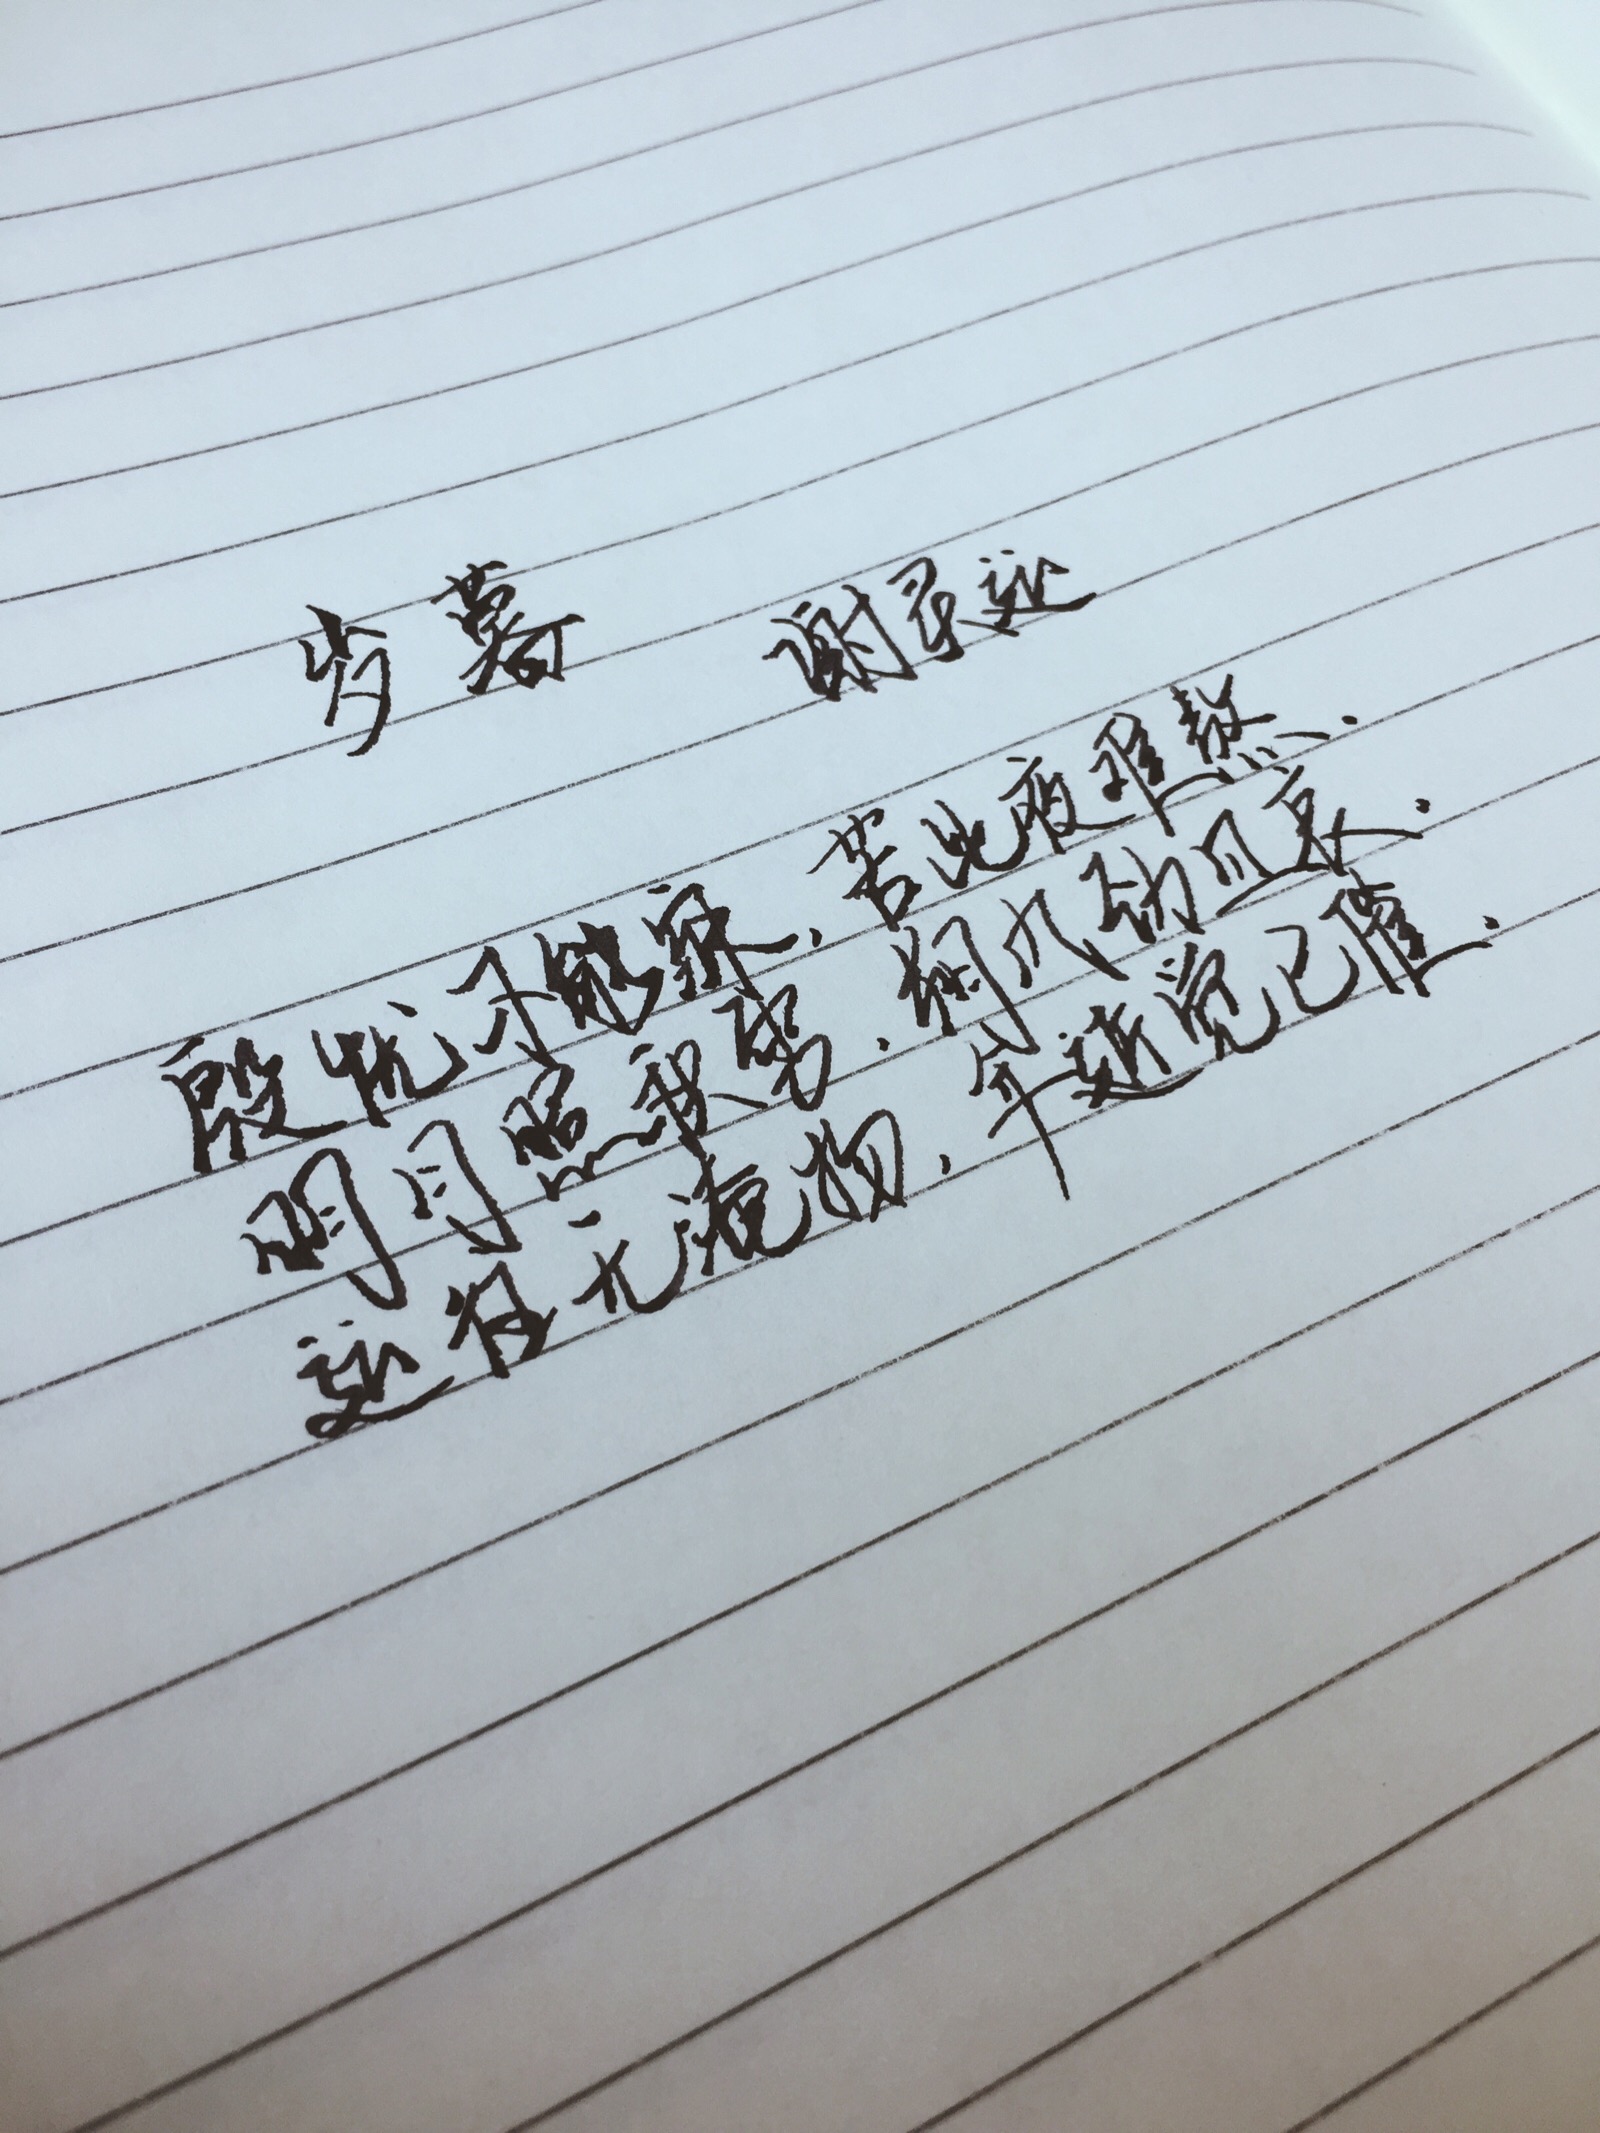 岁暮 谢灵运
殷忧不能寐.苦此夜难熬.
明月照积雪.朔风劲且哀.
运往无淹物.年逝觉已催.